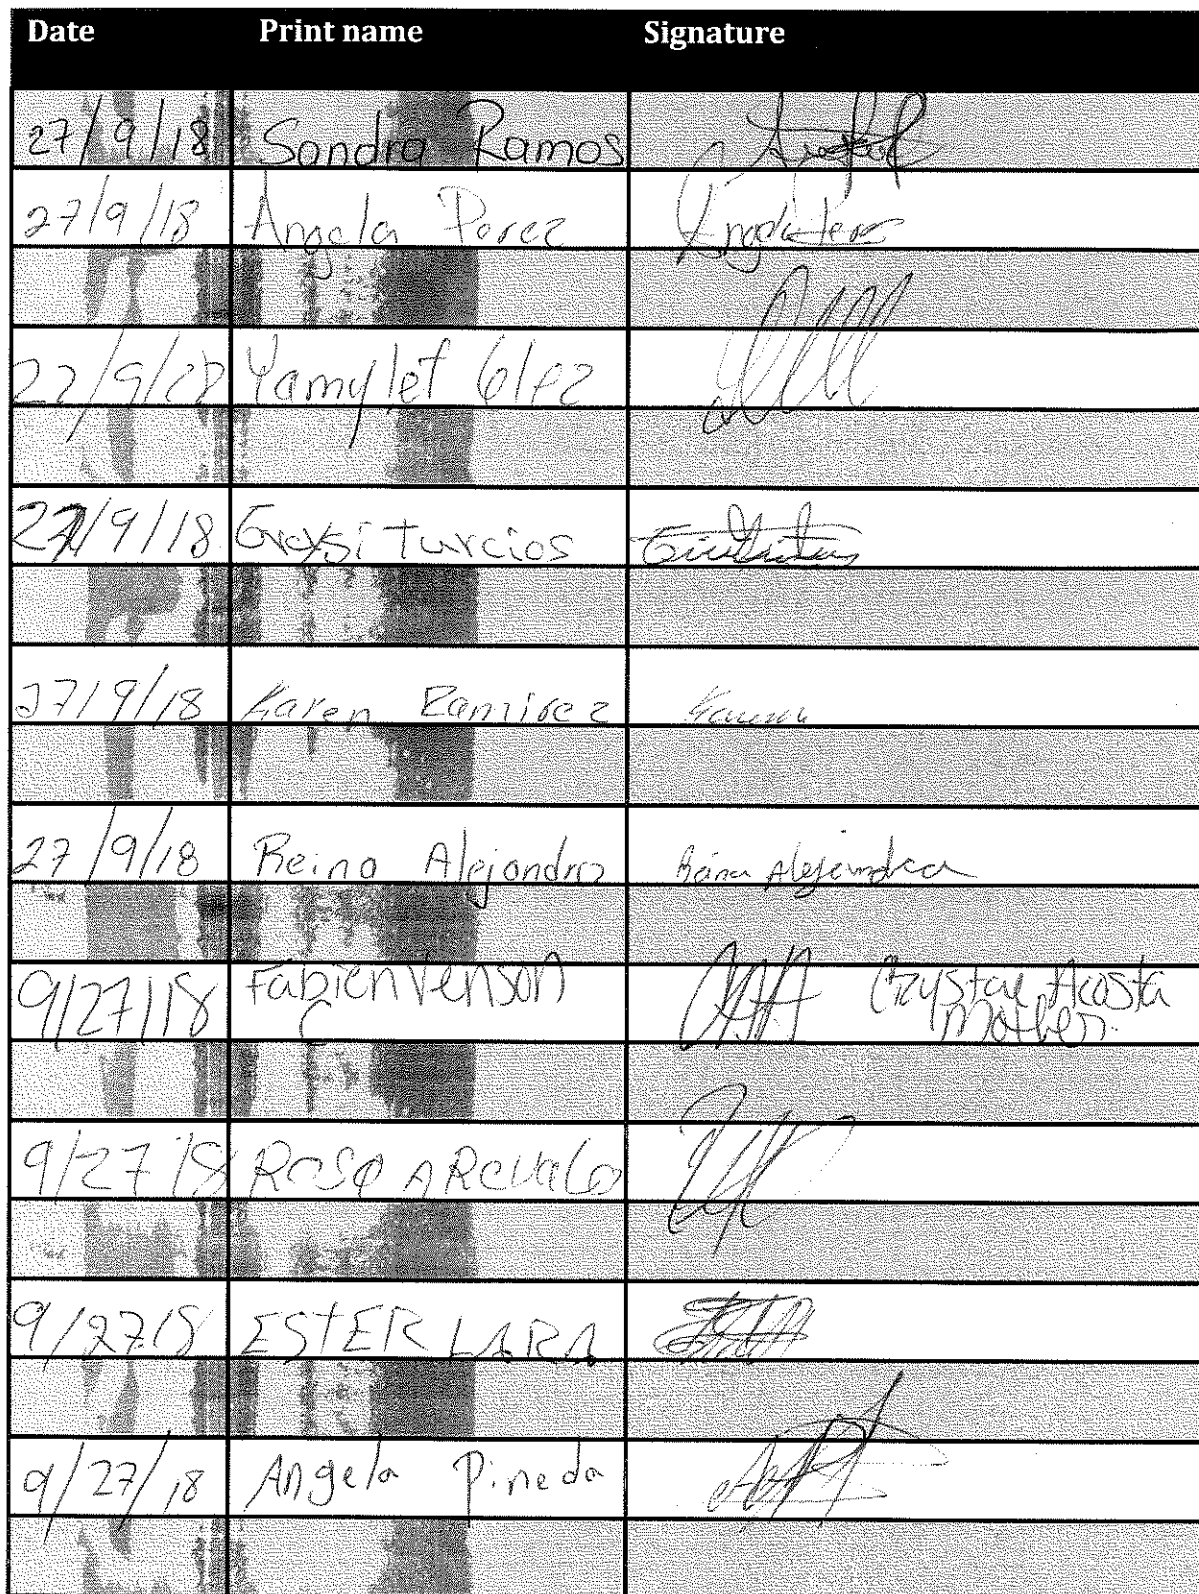 Date Print name Signature
27/9/18 Sandra Ramos
27/9/18 Angela Perez
Yamylet
27/9/18 Turcios
27/9/18 Karen Ramirez Karen
27/9/18 Reina Alejandra Reina Alejandra
9/27/18 Fabien Venson Crystal Acosta
Mother
9/27/18 Rosa AREVALO
9/27/18 ESTER LARA
9/27/18 Angela Pineda